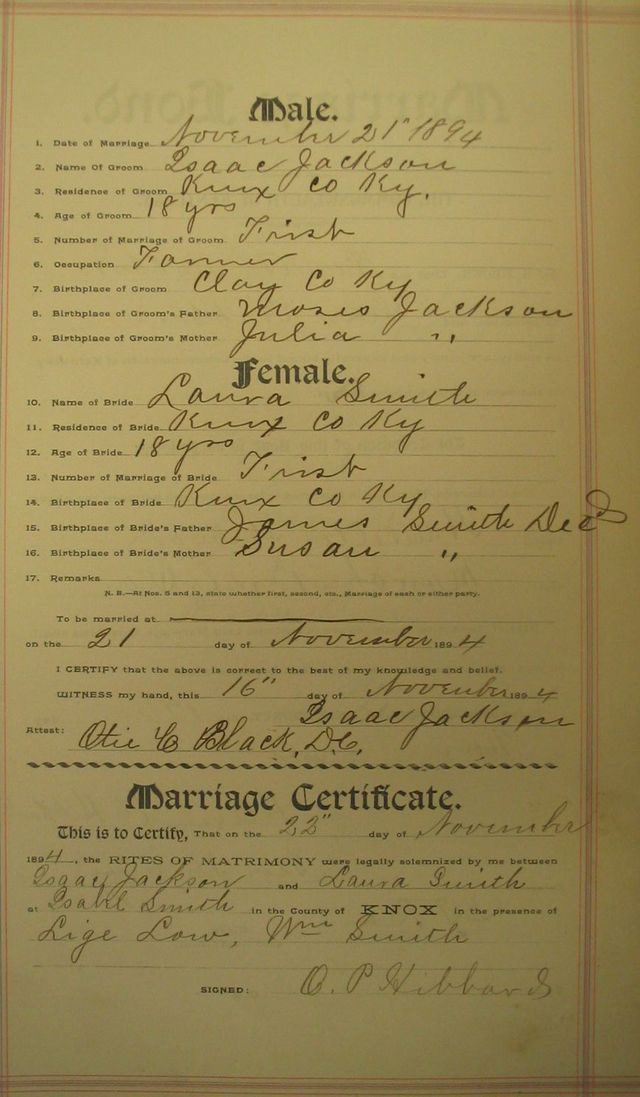 Male.
1. Date of Marriage November 21" 1894
2. Name Of Groom Isaac Jackson
3. Residence of Groom Knox Co Ky.
4. Age of Groom 18 yrs
5. Number of Marriage of Groom First
6. Occupation Farmer
7. Birthplace of Groom Clay Co Ky
8. Birthplace of Groom's Father Moses Jackson
9. Birthplace of Groom's Mother Julia "
Female.
10. Name of Bride Laura Smith
11. Residence of Bride Knox Co Ky
12. Age of Bride 18 yrs
13. Number of Marriage of Bride First
14. Birthplace of Bride Knox Co Ky
15. Birthplace of Bride's Father James Smith Decd
16. Birthplace of Bride's Mother Susan "
17. Remarks
N. B.—At Nos. 5 and 13, state whether first, second, etc., Marriage of each or either party.
To be married at
on the 21 day of November 1894
I CERTIFY that the above is correct to the best of my knowledge and belief.
WITNESS my hand, this 16" day of November 1894
Isaac Jackson
Attest: Otie C Black, D.C.
Marriage Certificate.
This is to Certify, That on the 22" day of November
1894, the RITES OF MATRIMONY were legally solemnized by me between
Isaac Jackson and Laura Smith
at Isabel Smith in the County of KNOX in the presence of
Lige Low, Wm Smith
SIGNED: O. P Hibbard